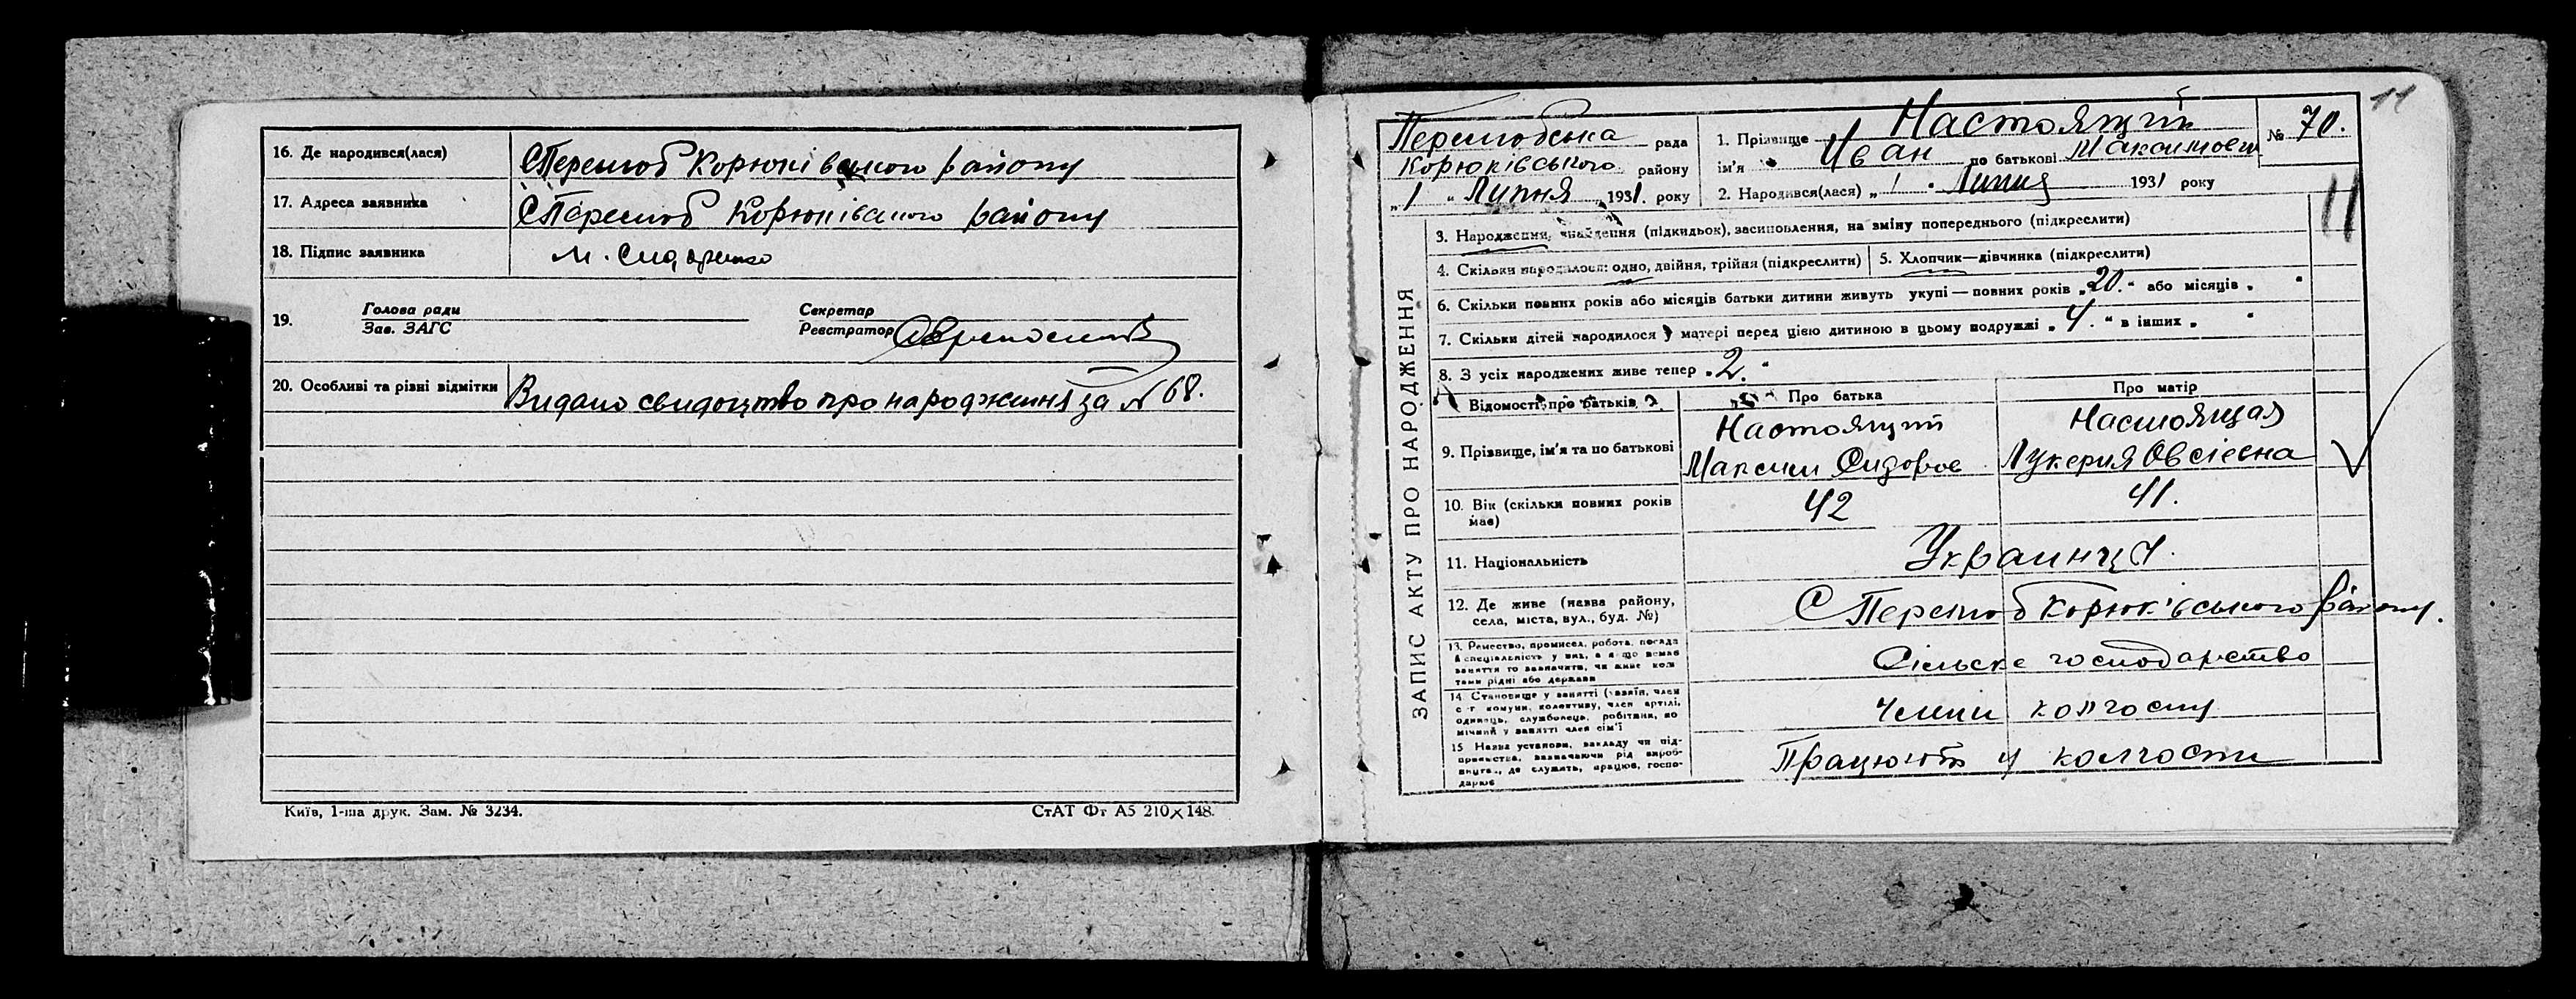 16. Де народився(лася)
С Перелюб Корюківського району
17. Адреса заявника
С Перелюб Корюківського району
18. Підпис заявника
М.
19.
Голова ради
Зав. ЗАГС
Секретар
Реєстратор
20. Особливі та різні відмітки
Видано свидоцтво про народження за № 68.
Київ, 1-ша друк. Зам. № 3234.
СтАТ Фт А5 210×148.
11
Перелюбська рада
Корюківського району
„1“ Липня 1931. року
1. Прізвище Настоящий
ім'я Иван по батькові Максимов
№ 70.
2. Народився(лася) „1“ Липня 1931 року
11
3. Народження, знайдення (підкидьок), засиновлення, на зміну попереднього (підкреслити)
4. Скільки народилося: одно, двійня, трійня (підкреслити)
5. Хлопчик—дівчинка (підкреслити)
6. Скільки повних років або місяців батьки дитини живуть укупі — повних років „20.“ або місяців „ “
7. Скільки дітей народилося у матері перед цією дитиною в цьому подружжі „4.“ в інших „ “
8. З усіх народжених живе тепер „2.“
ЗАПИС АКТУ ПРО НАРОДЖЕННЯ
Відомості про батьків
Про батька
Про матір
9. Прізвище, ім'я та по батькові
Настоящий
Максим Сидоров
Настоящая
Лукерия Овсіевна
10. Вік (скільки повних років має)
42
41.
11. Національність
Украинци.
12. Де живе (назва району,
села, міста, вул., буд. №)
С Перелюб Корюківського району.
13. Ремество, промисел, робота, посада
й спеціальність у них, а якщо немає
заняття то зазначити, чи живе кош
тами рідні або держави
Сільске господарство
14. Становище у занятті (хазяїн, член
с-г комуни, колективу, член артілі,
одинець, службовець, робітник, по
мічний у занятті член сім'ї
Члени колгоспу
15. Назва установи, закладу чи під-
приємства, зазначаючи рід вироб-
ництв., де служить, працює, госпо-
дарює
Працюють у колгоспи